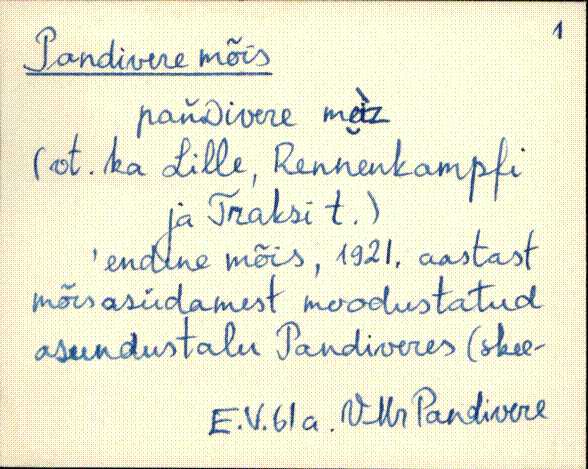 1
Pandivere mõis
pańDivere mè̮iz
(ot. ka Lille, Rennenkampfi
ja Traksi t.)
'endine mõis, 1921. aastast
mõisasüdamest moodustatud
asundustalu Pandiveres (skee-
E.V. 61a. V-Mr Pandivere